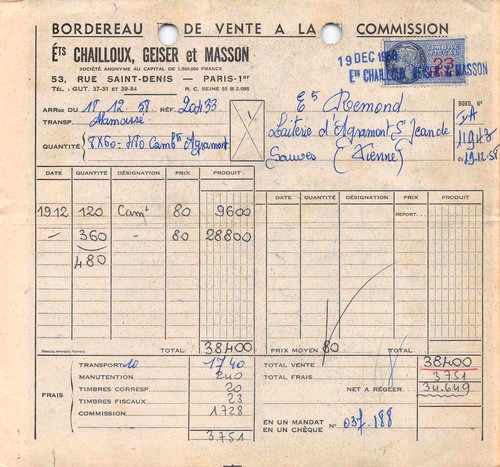 BORDEREAU DE VENTE A LA COMMISSION
Éts CHAILLOUX, GEISER et MASSON
SOCIÉTÉ ANONYME AU CAPITAL DE 1.500.000 FRANCS
53, RUE SAINT-DENIS — PARIS-1er
TÉL. : GUT. 37-31 et 39-84 R. C. SEINE 55 B 2.095
19 DEC 1958
Ets CHAILLOUX GEISER & MASSON
TIMBRE FISCAL
23
ARRge DU 18.12.58 RÉF. 20433
TRANSP.
QUANTITÉ 8X60 = 480 Cambts Agramont
Ets Remond
Laiterie d'Agramont St Jean de
Sauves (Vienne)
BORD. N°
11943
du 19.12.58
DATE QUANTITÉ DÉSIGNATION PRIX PRODUIT
19.12 120 Camt 80 9600
— 360 — 80 28800
480
TOTAL 38400
DATE QUANTITÉ DÉSIGNATION PRIX PRODUIT
REPORT...
PRIX MOYEN 80 TOTAL
FRAIS
TRANSPORT 10 1740
MANUTENTION 240
TIMBRES CORRESP. 20
TIMBRES FISCAUX 23
COMMISSION 1728
3751
TOTAL VENTE 38400
TOTAL FRAIS 3751
NET A RÉGLER. 34.649
EN UN MANDAT
EN UN CHÈQUE N° 037.188